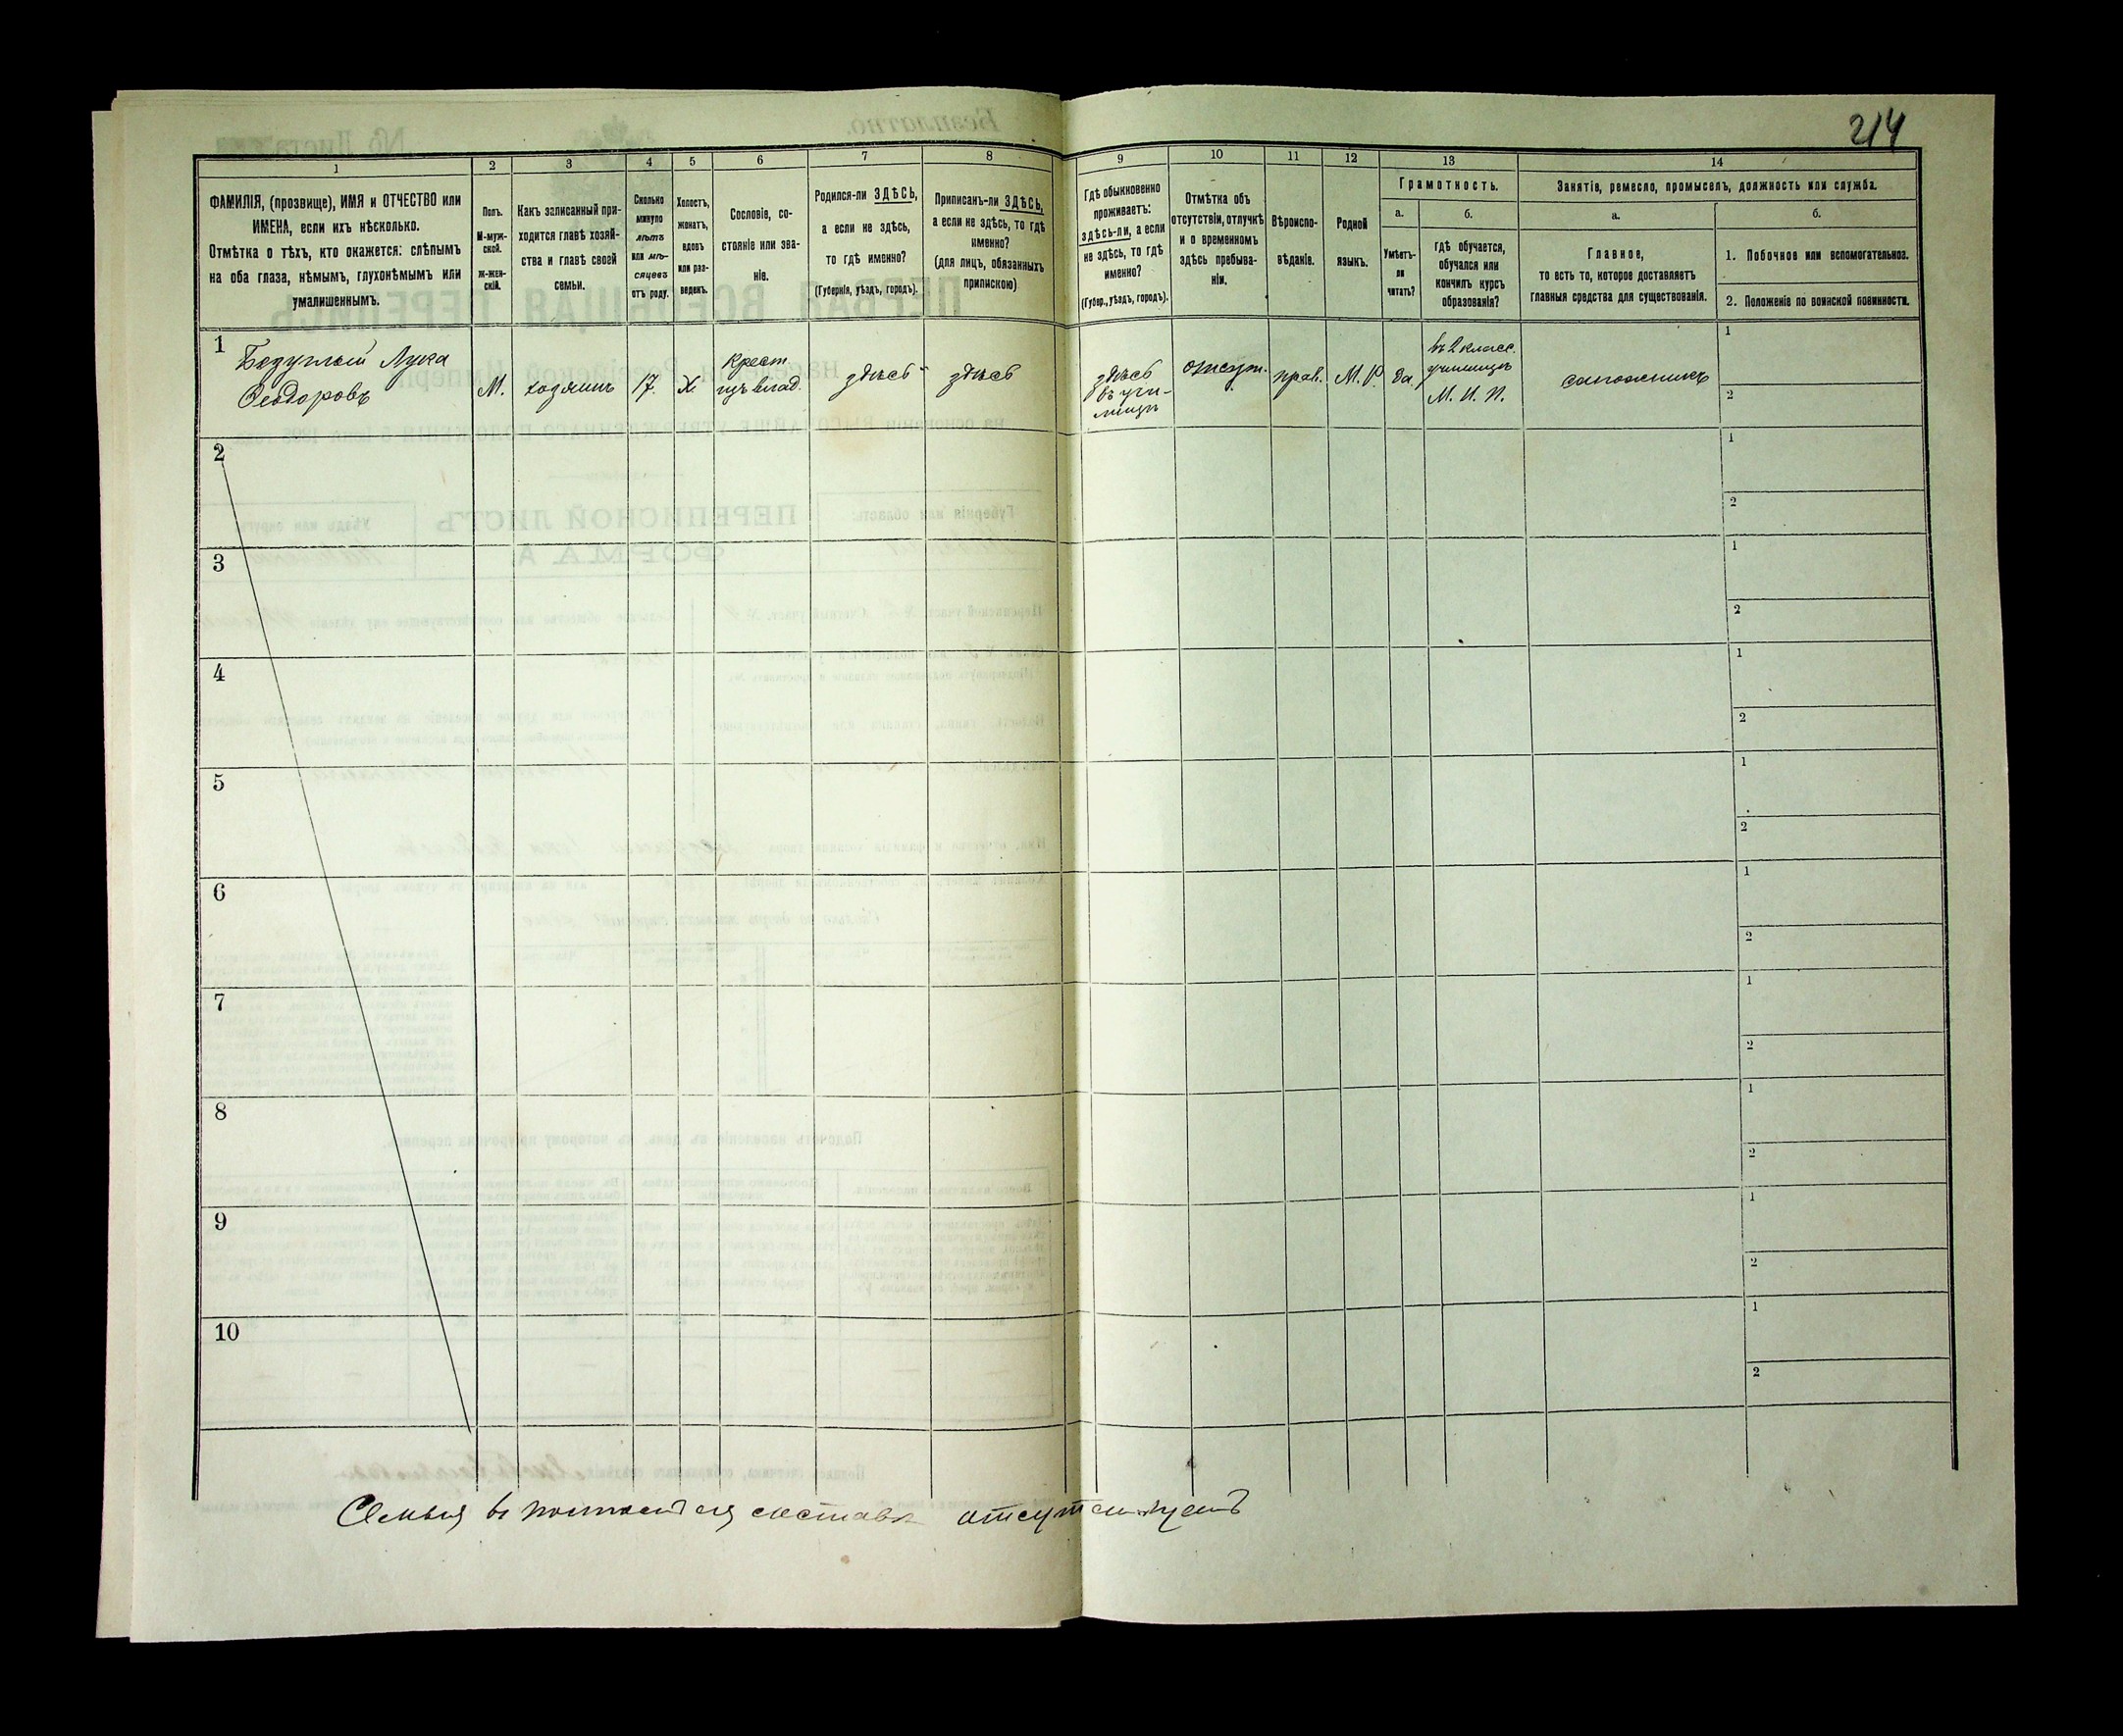 214
1
2
3
4
5
6
7
8
9
10
11
12
13
14
ФАМИЛІЯ, (прозвище), ИМЯ и ОТЧЕСТВО или
ИМЕНА, если ихъ нѣсколько.
Отмѣтка о тѣхъ, кто окажется: слѣпымъ
на оба глаза, нѣмымъ, глухонѣмымъ или
умалишеннымъ.
Полъ.
М-муж-
ской.
ж-жен-
скій.
Какъ записанный при-
ходится главѣ хозяй-
ства и главѣ своей
семьи.
Сколько
минуло
лѣтъ
или мѣ-
сяцевъ
отъ роду.
Холостъ,
женатъ,
вдовъ
или раз-
веденъ.
Сословіе, со-
стояніе или зва-
ніе.
Родился-ли ЗДѢСЬ,
а если не здѣсь,
то гдѣ именно?
(Губернія, уѣздъ, городъ).
Приписанъ-ли ЗДѢСЬ,
а если не здѣсь, то гдѣ
именно?
(для лицъ, обязанныхъ
припискою)
Гдѣ обыкновенно
проживаетъ:
здѣсь-ли, а если
не здѣсь, то гдѣ
именно?
(Губер., уѣздъ, городъ).
Отмѣтка объ
отсутствіи, отлучкѣ
и о временномъ
здѣсь пребыва-
ніи.
Вѣроиспо-
вѣданіе.
Родной
языкъ.
Грамотность.
а.
Умѣетъ-
ли
читать?
б.
гдѣ обучается,
обучался или
кончилъ курсъ
образованія?
Занятіе, ремесло, промыселъ, должность или служба.
а.
Главное,
то есть то, которое доставляетъ
главныя средства для существованія.
б.
1. Побочное или вспомогательное.
2. Положеніе по воинской повинности.
1
Лука
Феодоровъ
М.
хозяинъ
17.
Х.
Крест.
изъ влад.
здѣсь
здѣсь
здѣсь
въ учи-
лищѣ
отсут.
прав.
М. Р.
да
въ 2 класс.
училищѣ
М. И. П.
сапожникъ
1
2
2
1
2
3
1
2
4
1
2
5
1
2
6
1
2
7
1
2
8
1
2
9
1
2
10
1
2
Семья въ составѣ отсутствуетъ